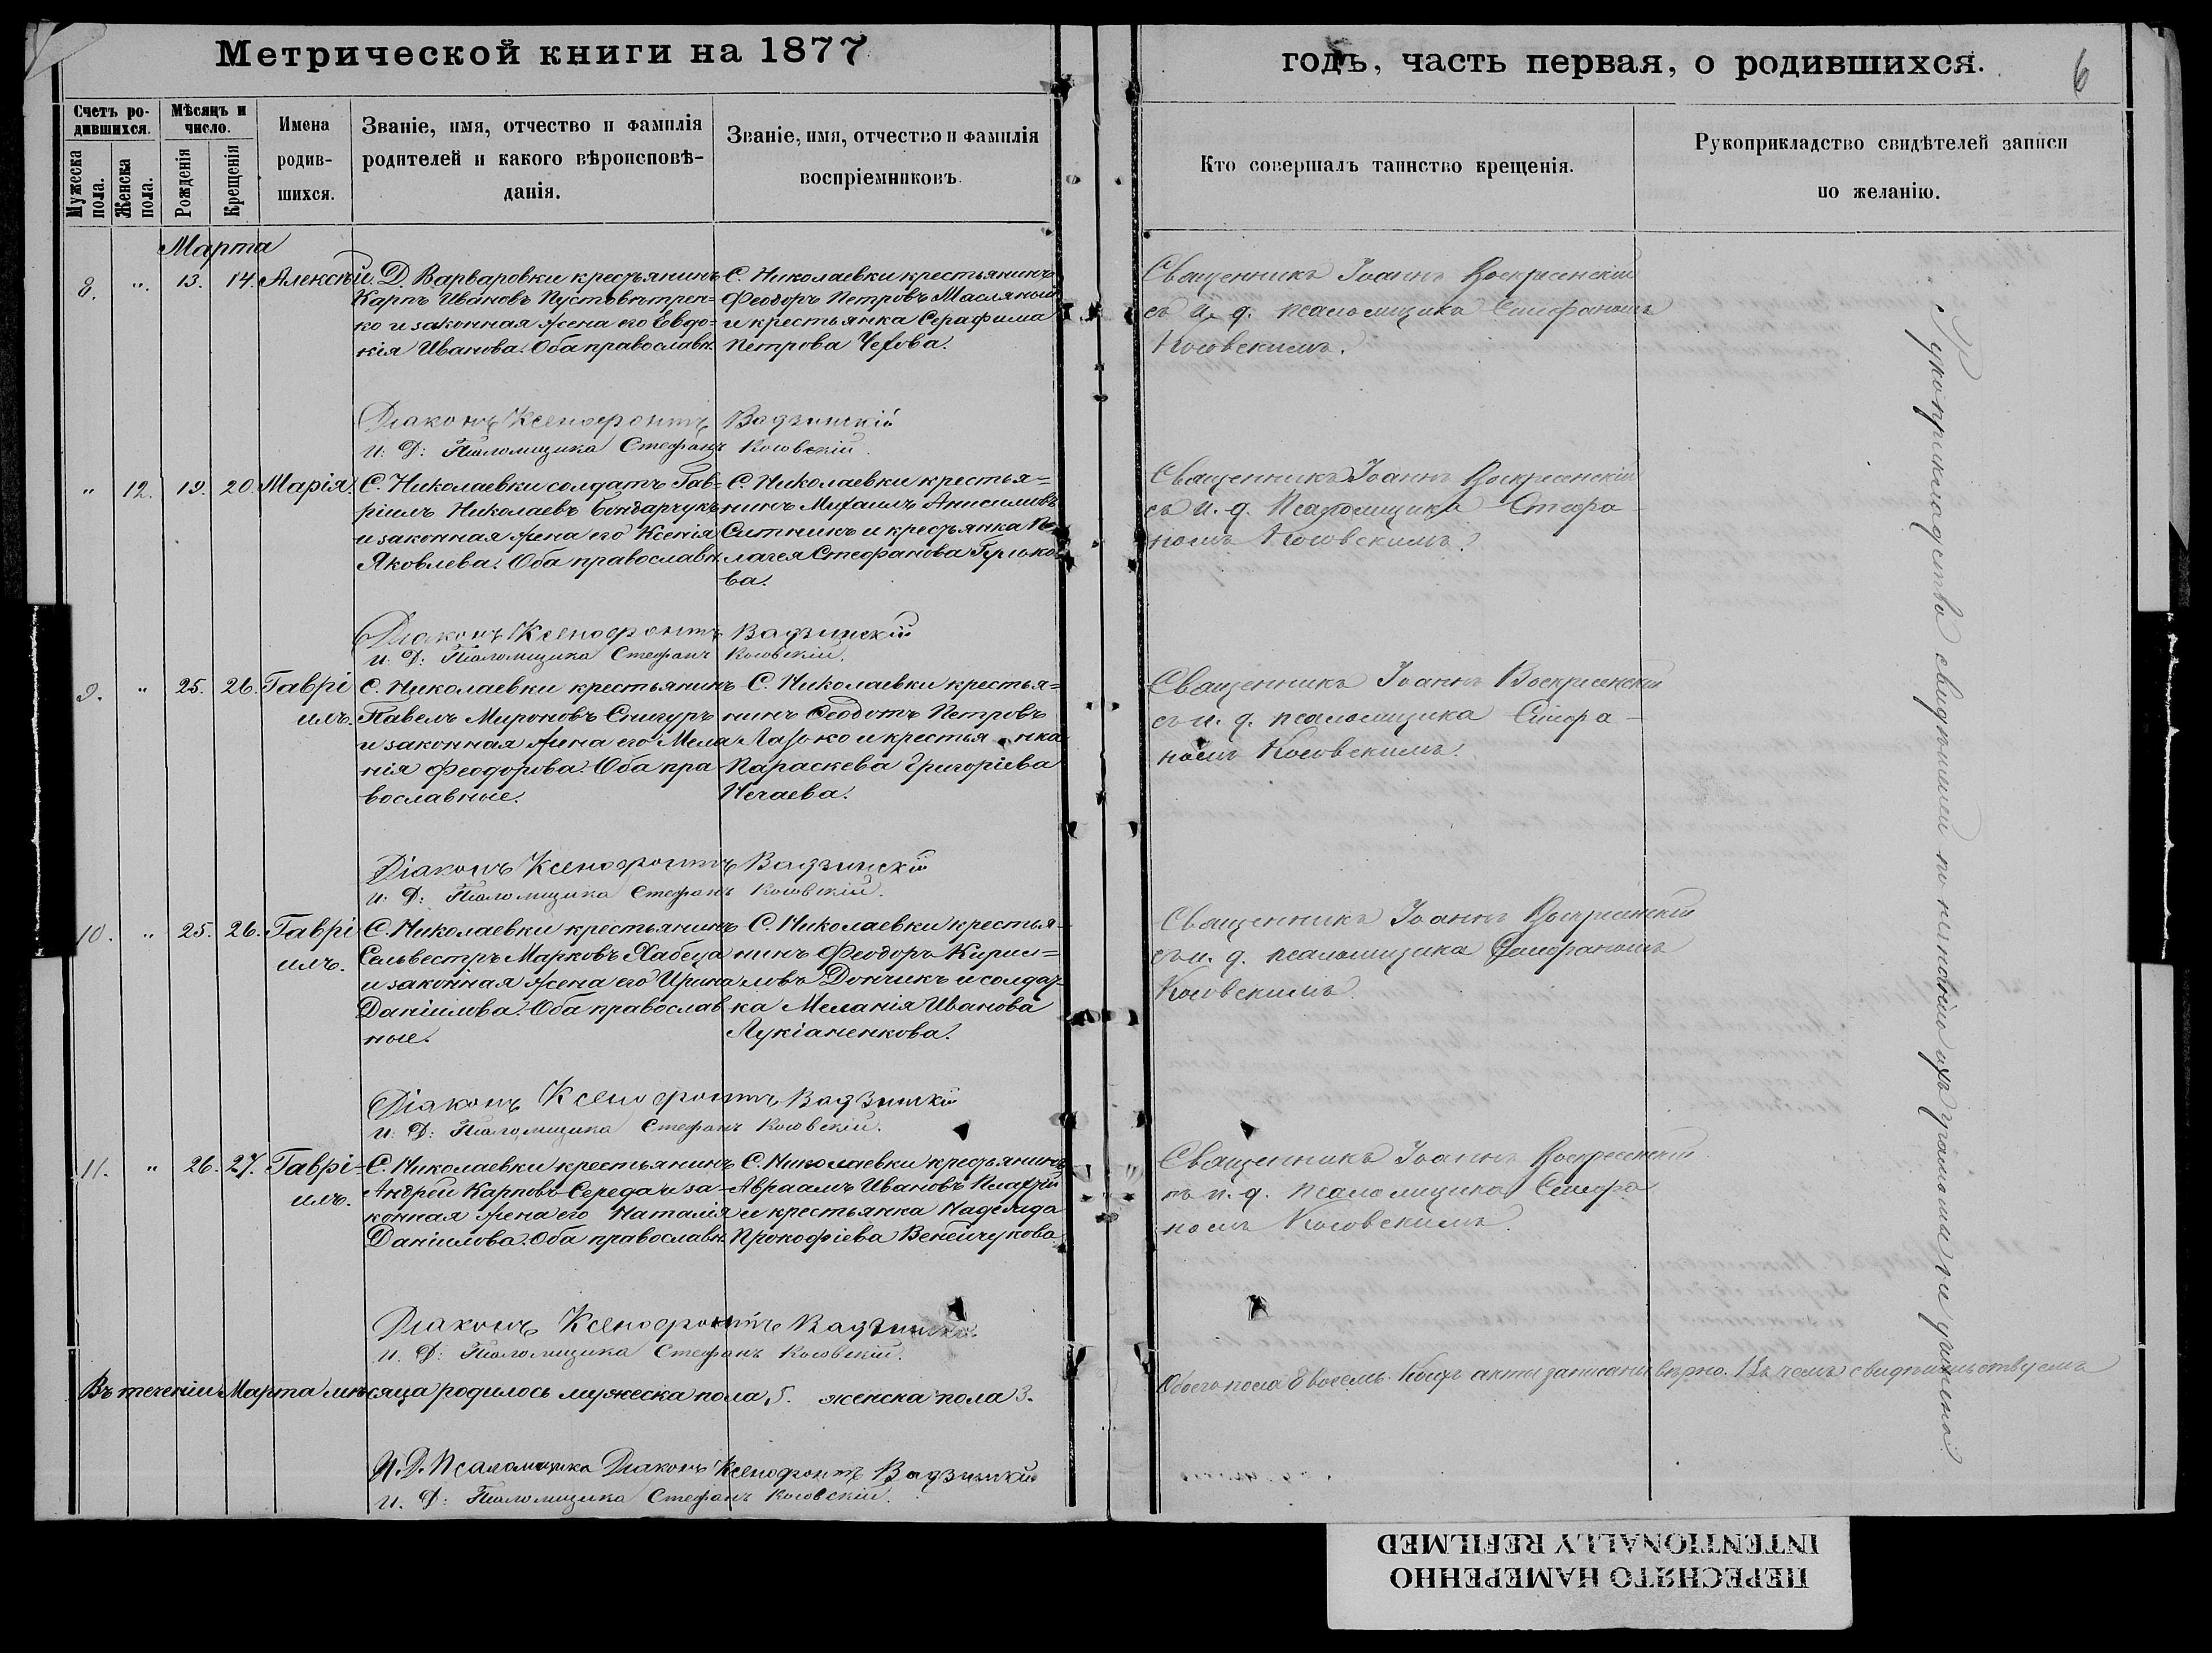 Метрической книги на 1877
годъ, часть первая, о родившихся.
6
Счетъ ро-
дившихся.
Мужеска пола.
Женска пола.
Мѣсяцъ и
число.
Рожденія
Крещенія
Имена
родив-
шихся.
Званіе, имя, отчество и фамилія
родителей и какого вѣроисповѣ-
данія.
Званіе, имя, отчество и фамилія
воспріемниковъ.
Кто совершалъ таинство крещенія.
Рукоприкладство свидѣтелей записи
по желанію.
Марта
8. " 13. 14. Алексѣй.
Д. Варваровки крестьянинъ
Карпъ Ивановъ Пустовѣтрен-
ко и законная жена его Евдо-
кія Иванова. Оба православн.
С. Николаевки крестьянинъ
Феодоръ Петровъ Масляный
и крестьянка Серафима
Петрова Чехова.
Священникъ Іоаннъ Воскресенскій
съ и. д. псаломщика Стефаномъ
Косовскимъ.
Діаконъ Ксенофонтъ Вадзинскій
И: Д: Псаломщика Стефанъ Косовскій.
" 12. 19. 20. Марія.
С. Николаевки солдатъ Гав-
ріилъ Николаевъ Бондарчукъ
и законная жена его Ксенія
Яковлева. Оба православн.
С. Николаевки крестья=
нинъ Михаилъ Анисимовъ
Ситникъ и крестьянка Пе-
лагея Стефанова
ва.
Священникъ Іоаннъ Воскресенскій
съ и. д. Псаломщика Стефа-
номъ Косовскимъ.
Діаконъ Ксенофонтъ Вадзинскій
И: Д: Псаломщика Стефанъ Косовскій.
9. " 25. 26. Гаврі
илъ.
С. Николаевки крестьянинъ
Павелъ Мироновъ Снигуръ
и законная жена его Мела
нія Феодорова. Оба пра-
вославные.
С. Николаевки крестья=
нинъ Феодотъ Петровъ
Лазько и крестьянка
Параскева Григоріева
Нечаева.
Священникъ Іоаннъ Воскресенскій
съ и. д. псаломщика Стефа-
номъ Косовскимъ.
Діаконъ Ксенофонтъ Вадзинскій
И: Д: Псаломщика Стефанъ Косовскій.
10. " 25. 26. Гаврі
илъ.
С. Николаевки крестьянинъ
Сельвестръ Марковъ Хабеца
и законная жена его Ирина
Даніилова. Оба православ
ные.
С. Николаевки крестья-
нинъ Феодоръ Кирил=
ловъ Дончикъ и солдат-
ка Меланія Иванова
Лукіаненкова.
Священникъ Іоаннъ Воскресенскій
съ и. д. псаломщика Стефаномъ
Косовскимъ.
Діаконъ Ксенофонтъ Вадзинскій
И: Д: Псаломщика Стефанъ Косовскій.
11. " 26. 27. Гаврі-
илъ.
С. Николаевки крестьянинъ
Андрей Карповъ Середа и за-
конная жена его Наталія
Даніилова. Оба православн.
С. Николаевки крестьянинъ
Авраамъ Ивановъ
и крестьянка Надежда
Прокофіева Венейчукова.
Священникъ Іоаннъ Воскресенскій
съ и. д. псаломщика Стефа
номъ Косовскимъ.
Діаконъ Ксенофонтъ Вадзинскій
И: Д: Псаломщика Стефанъ Косовскій.
Въ теченіи Марта мѣсяца родилось мужеска пола 5. женска пола 3.
Обоего пола 8 восемь. Коихъ акты записаны вѣрно. Въ чемъ свидѣтельствуемъ
И. Д. Псаломщика Діаконъ Ксенофонтъ Вадзинскій
И. Д: Псаломщика Стефанъ Косовскій.
Рукоприкладство свидѣтелей по незнанію ихъ грамоты не учинено.
ПЕРЕСНЯТО НАМЕРЕННО
INTENTIONALLY REFILMED